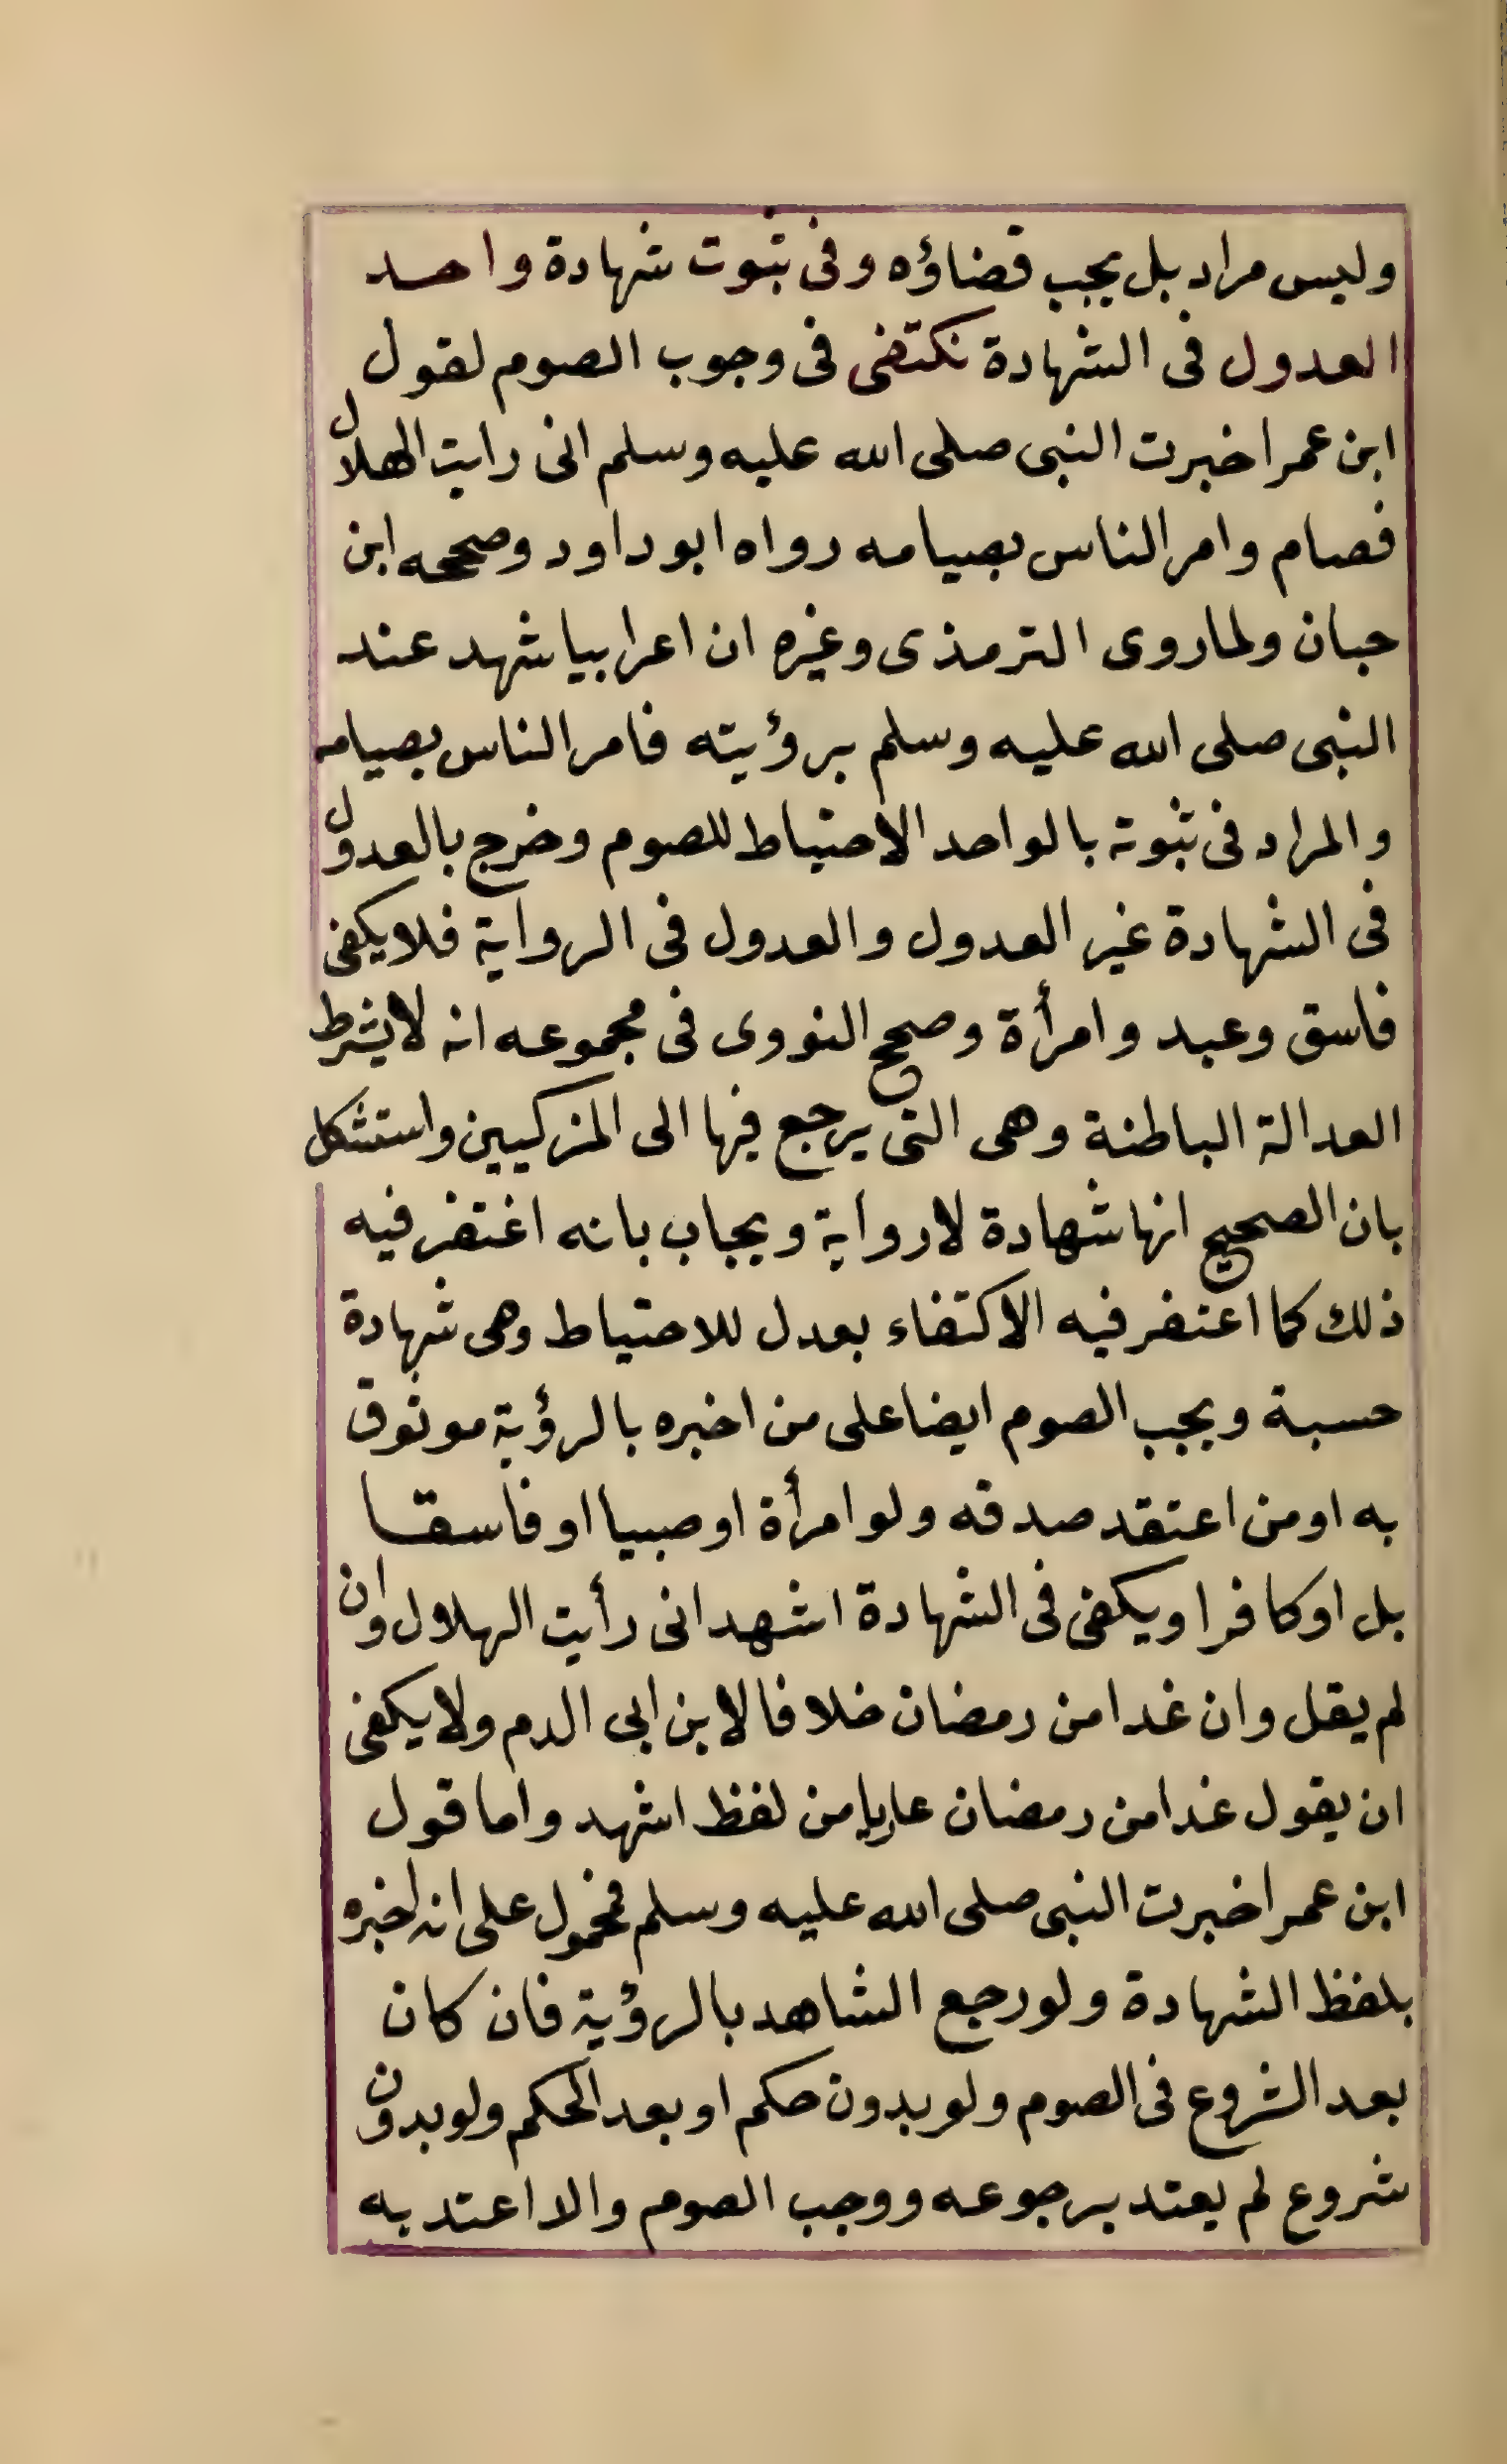 وليس مراد بل يجب قضاؤه وفى ثبوت شهادة واحد
العدول فى الشهادة نكتفى فى وجوب الصوم لقول
ابن عمر اخبرت النبى صلى الله عليه وسلم انى رايت الهلال
فصام وامر الناس بصيامه رواه ابو داود وصححه ابن
حبان ولما روى الترمذى وغيره ان اعرابيا شهد عند
النبى صلى الله عليه وسلم برؤيته فامر الناس بصيامه
والمراد فى ثبوته بالواحد الاحتياط للصوم وخرج بالعدول
فى الشهادة غير العدول والعدول فى الرواية فلا يكفى
فاسق وعبد وامرأة وصحح النووى فى مجموعه انه لا يشترط
العدالة الباطنة وهى التى يرجع فيها الى المزكيين واستشكل
بان الصحيح انها شهادة لا رواية ويجاب بانه اغتفر فيه
ذلك كما اعتفر فيه الاكتفاء بعدل للاحتياط وهى شهادة
حسبة ويجب الصوم ايضا على من اخبره بالرؤية موثوق
به او من اعتقد صدقه ولو امرأة او صبيا او فاسقا
بل او كافرا ويكفى فى الشهادة اشهد انى رأيت الهلال وان
لم يقل وان غدا من رمضان خلافا لابن ابى الدم ولا يكفى
ان يقول غدا من رمضان عاريا من لفظ اشهد واما قول
ابن عمر اخبرت النبى صلى الله عليه وسلم فمحمول على انه اخبره
بلفظ الشهادة ولو رجع الشاهد بالرؤية فان كان
بعد الشروع فى الصوم ولو بدون حكم او بعد الحكم ولو بدون
شروع لم يعتد برجوعه ووجب الصوم والا اعتد به